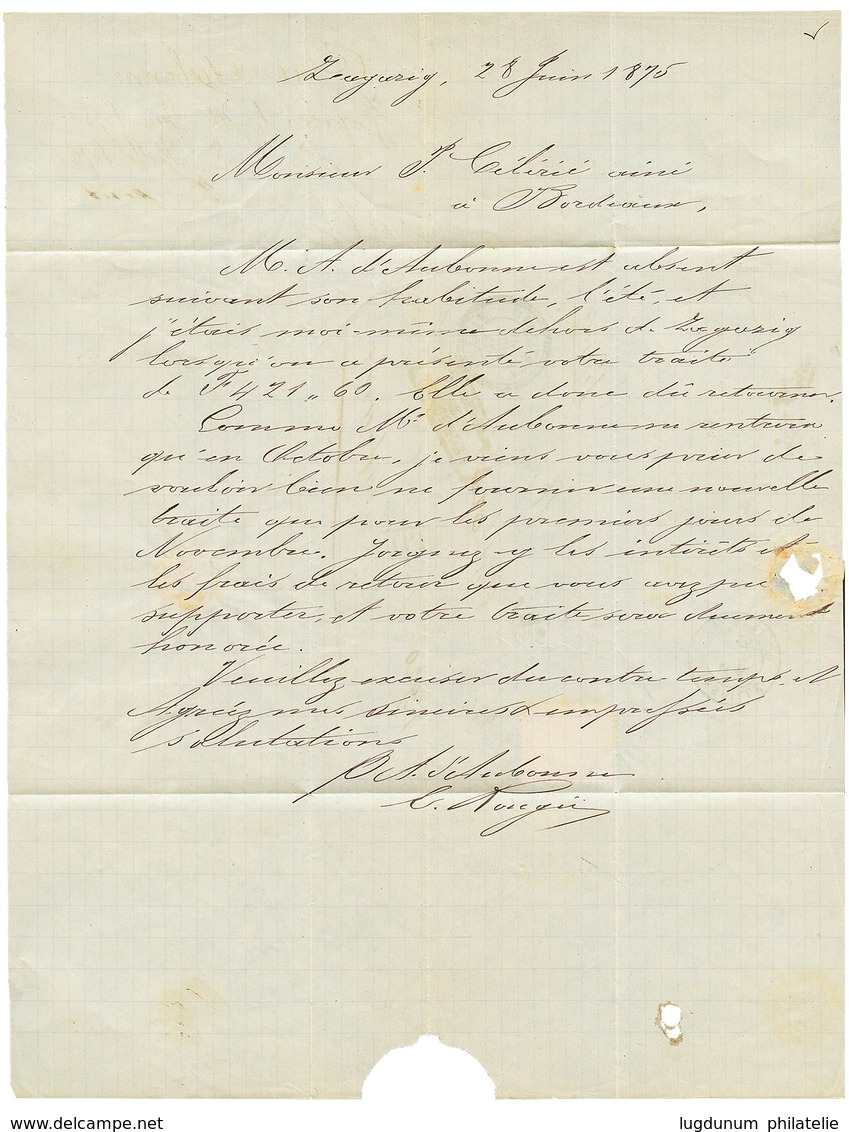 Zagazig, 28 Juin 1875
Monsieur P. Célérié ainé
à Bordeaux,
M. A. d'Aubonne est absent
suivant son habitude, l'été, et
j'étais moi-même dehors de Zagazig
lorsqu'on a présenté votre traite
de F 421,, 60. Elle a donc dû retourner.
Comme Mr d'Aubonne ne rentrera
qu'en Octobre, je viens vous prier de
vouloir bien ne fournir une nouvelle
traite que pour les premiers jours de
Novembre. Joignez-y les intérêts et
les frais de retour que vous avez pu
supporter, et votre traite sera dument
honorée.
Veuillez excuser du contre temps, et
Agréez mes sincères & empressées
salutations
P A. d'Aubonne
C. Rougié
www.delcampe.net
lugdunum philatelie